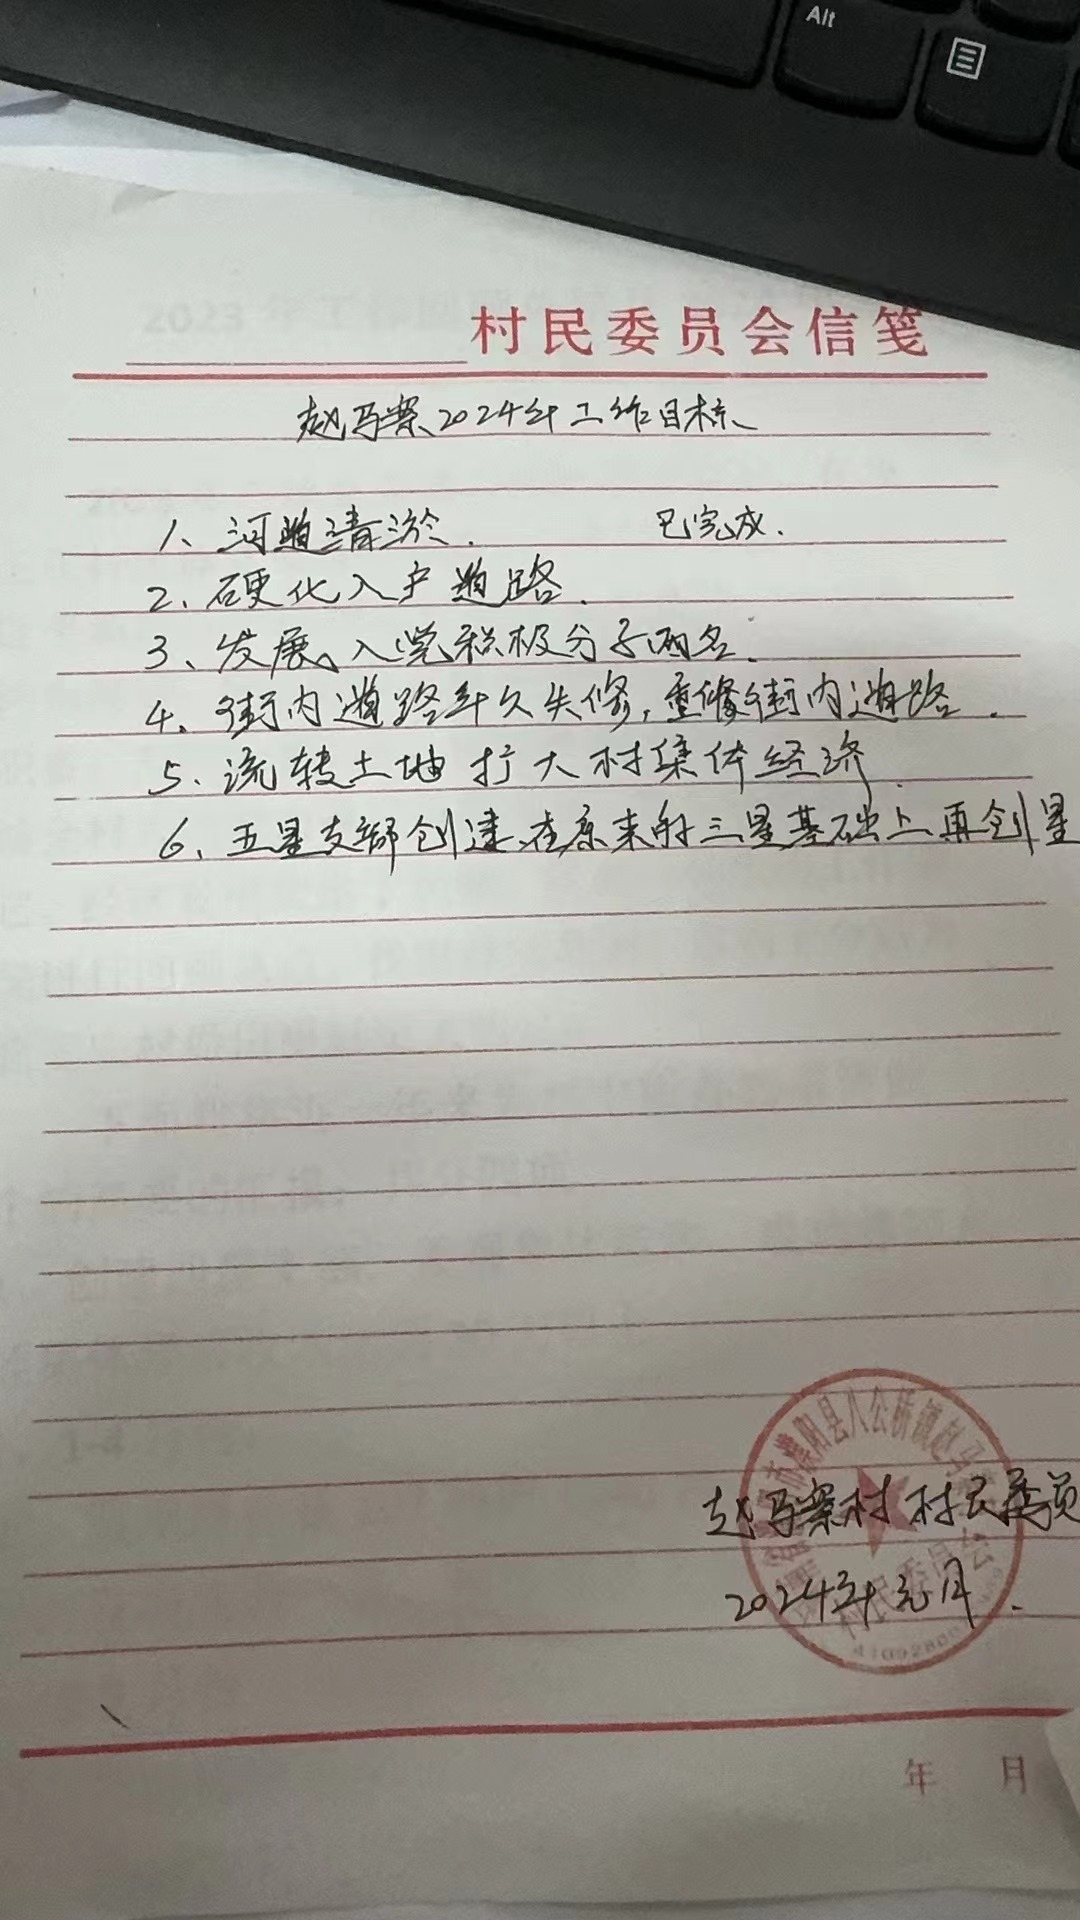 Alt
村民委员会信笺
赵马寨2024年工作目标
1、河道清淤. 已完成.
2、硬化入户道路.
3、发展、入党积极分子两名.
4、街内道路年久失修,重修街内道路.
5、流转土地 打大村集体经济.
6、五星支部创建、在原来的三星基础上再创星
濮阳县八公桥镇赵马
村民委员会
赵马寨村村民委员
2024年元月.
年 月